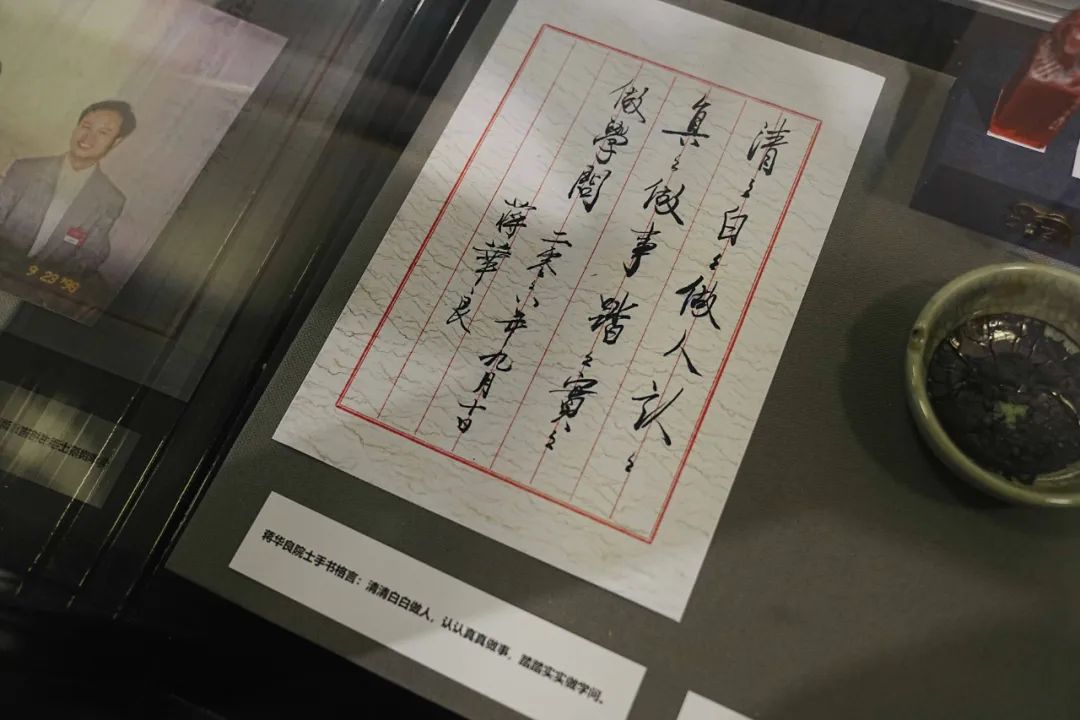 清〻白〻做人認〻
真〻做事踏〻實〻
做學問
二零〻八年九月十日
蔣華良
蒋华良院士手书格言：清清白白做人，认认真真做事，踏踏实实做学问。
9 23 '98